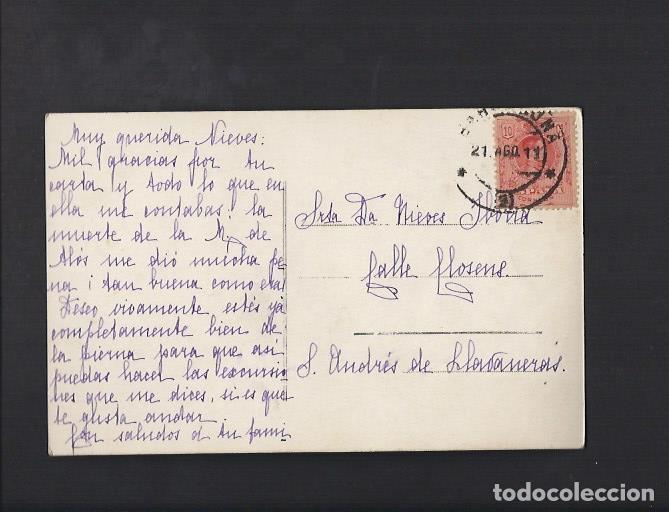 Muy querida Nieves:
Mil gracias por tu
carta y todo lo que en
ella me contabas: la
muerte de la M. de
Alós me dió mucha pe
na ¡tan buena como era!
Deseo vivamente estés ya
completamente bien de
la pierna para que así
puedas hacer las excursio
nes que me dices, si es que
te gusta andar.
Con saludos á tu fami
10
21.AGO.11
Srta Da Nieves Iborra
Calle Closens
S. Andrés de Llavaneras.
todocoleccion.net